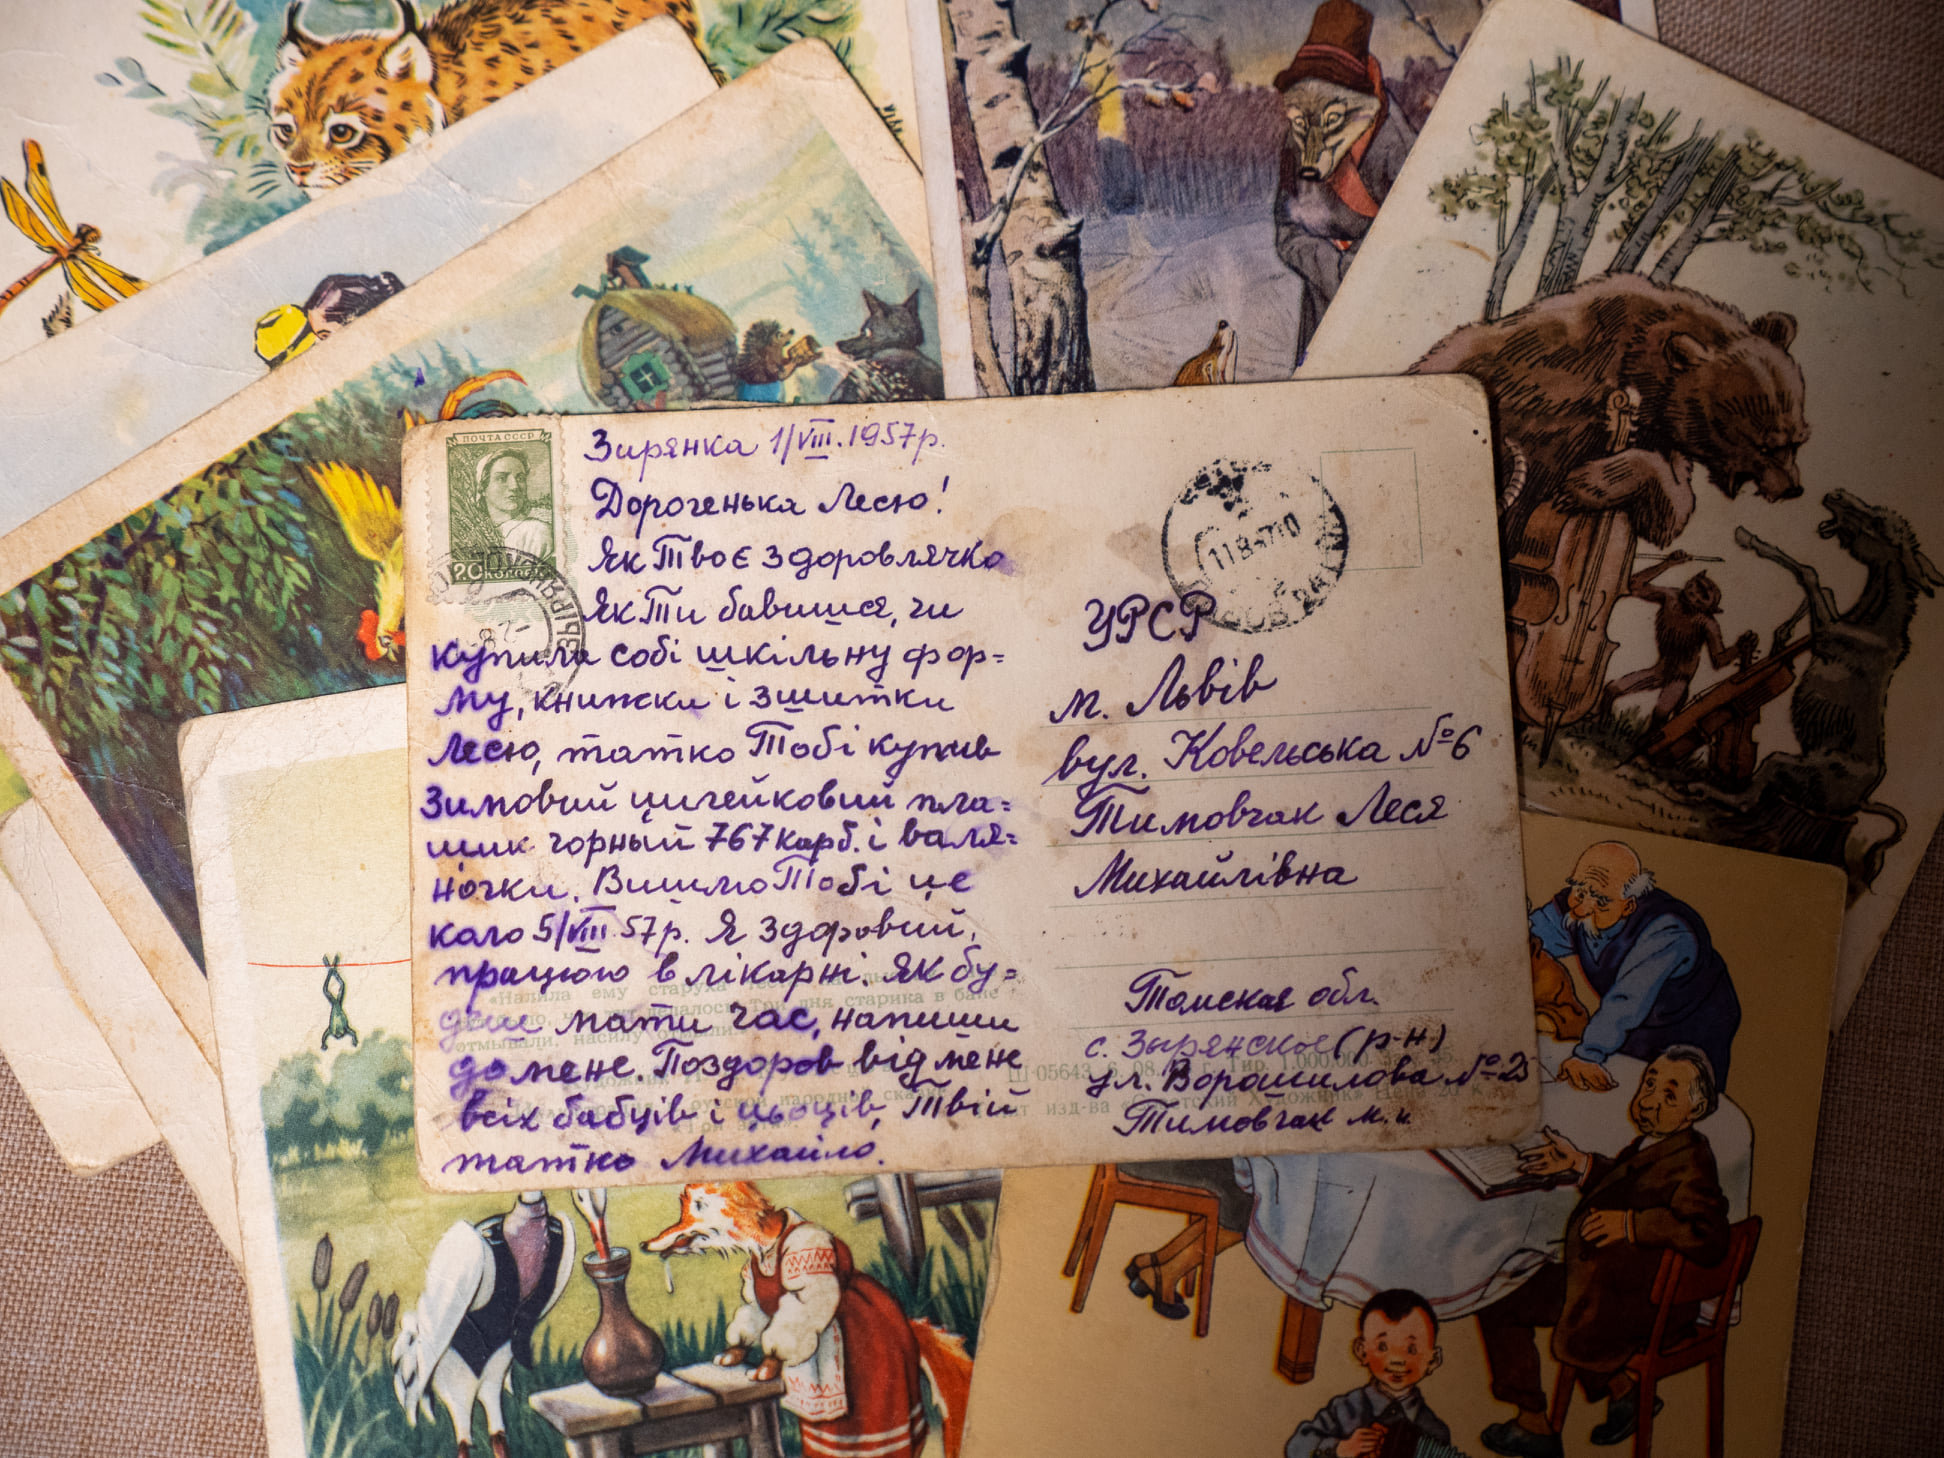 ПОЧТА СССР
20 КОПЕЕК
Зирянка 1/VIII.1957р.
Дорогенька Лесю!
Як Твоє здоровлячко
Як Ти бавишся, чи
купила собі шкільну фор=
му, книжки і зшитки
Лесю, татко Тобі купив
Зимовий цигейковий пла=
щик чорный 767 карб. і валя=
ночки. Вишлю Тобі це
коло 5/VIII 57р. Я здоровий,
працюю в лікарні. Як бу=
деш мати час, напиши
до мене. Поздоров від мене
всіх бабців і цьоців, Твій
татко Михайло.
11 8 57 10
УРСР
м. Львів
вул. Ковельська №6
Тимовчак Леся
Михайлівна
Томская обл.
с. Зырянское (р-н)
ул. Ворошилова №25
Тимовчак М. и.
«Налила ему старуха
дня старика в бане
отмывали, насилу
Ш-05643 6. 08. Тир. 1.000.000
изд-ва «Советский Художник» Цена 20 к.